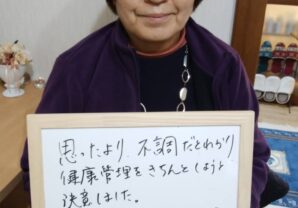 思ったより、不調だとわかり
健康管理をきちんとしようと
決意しました。